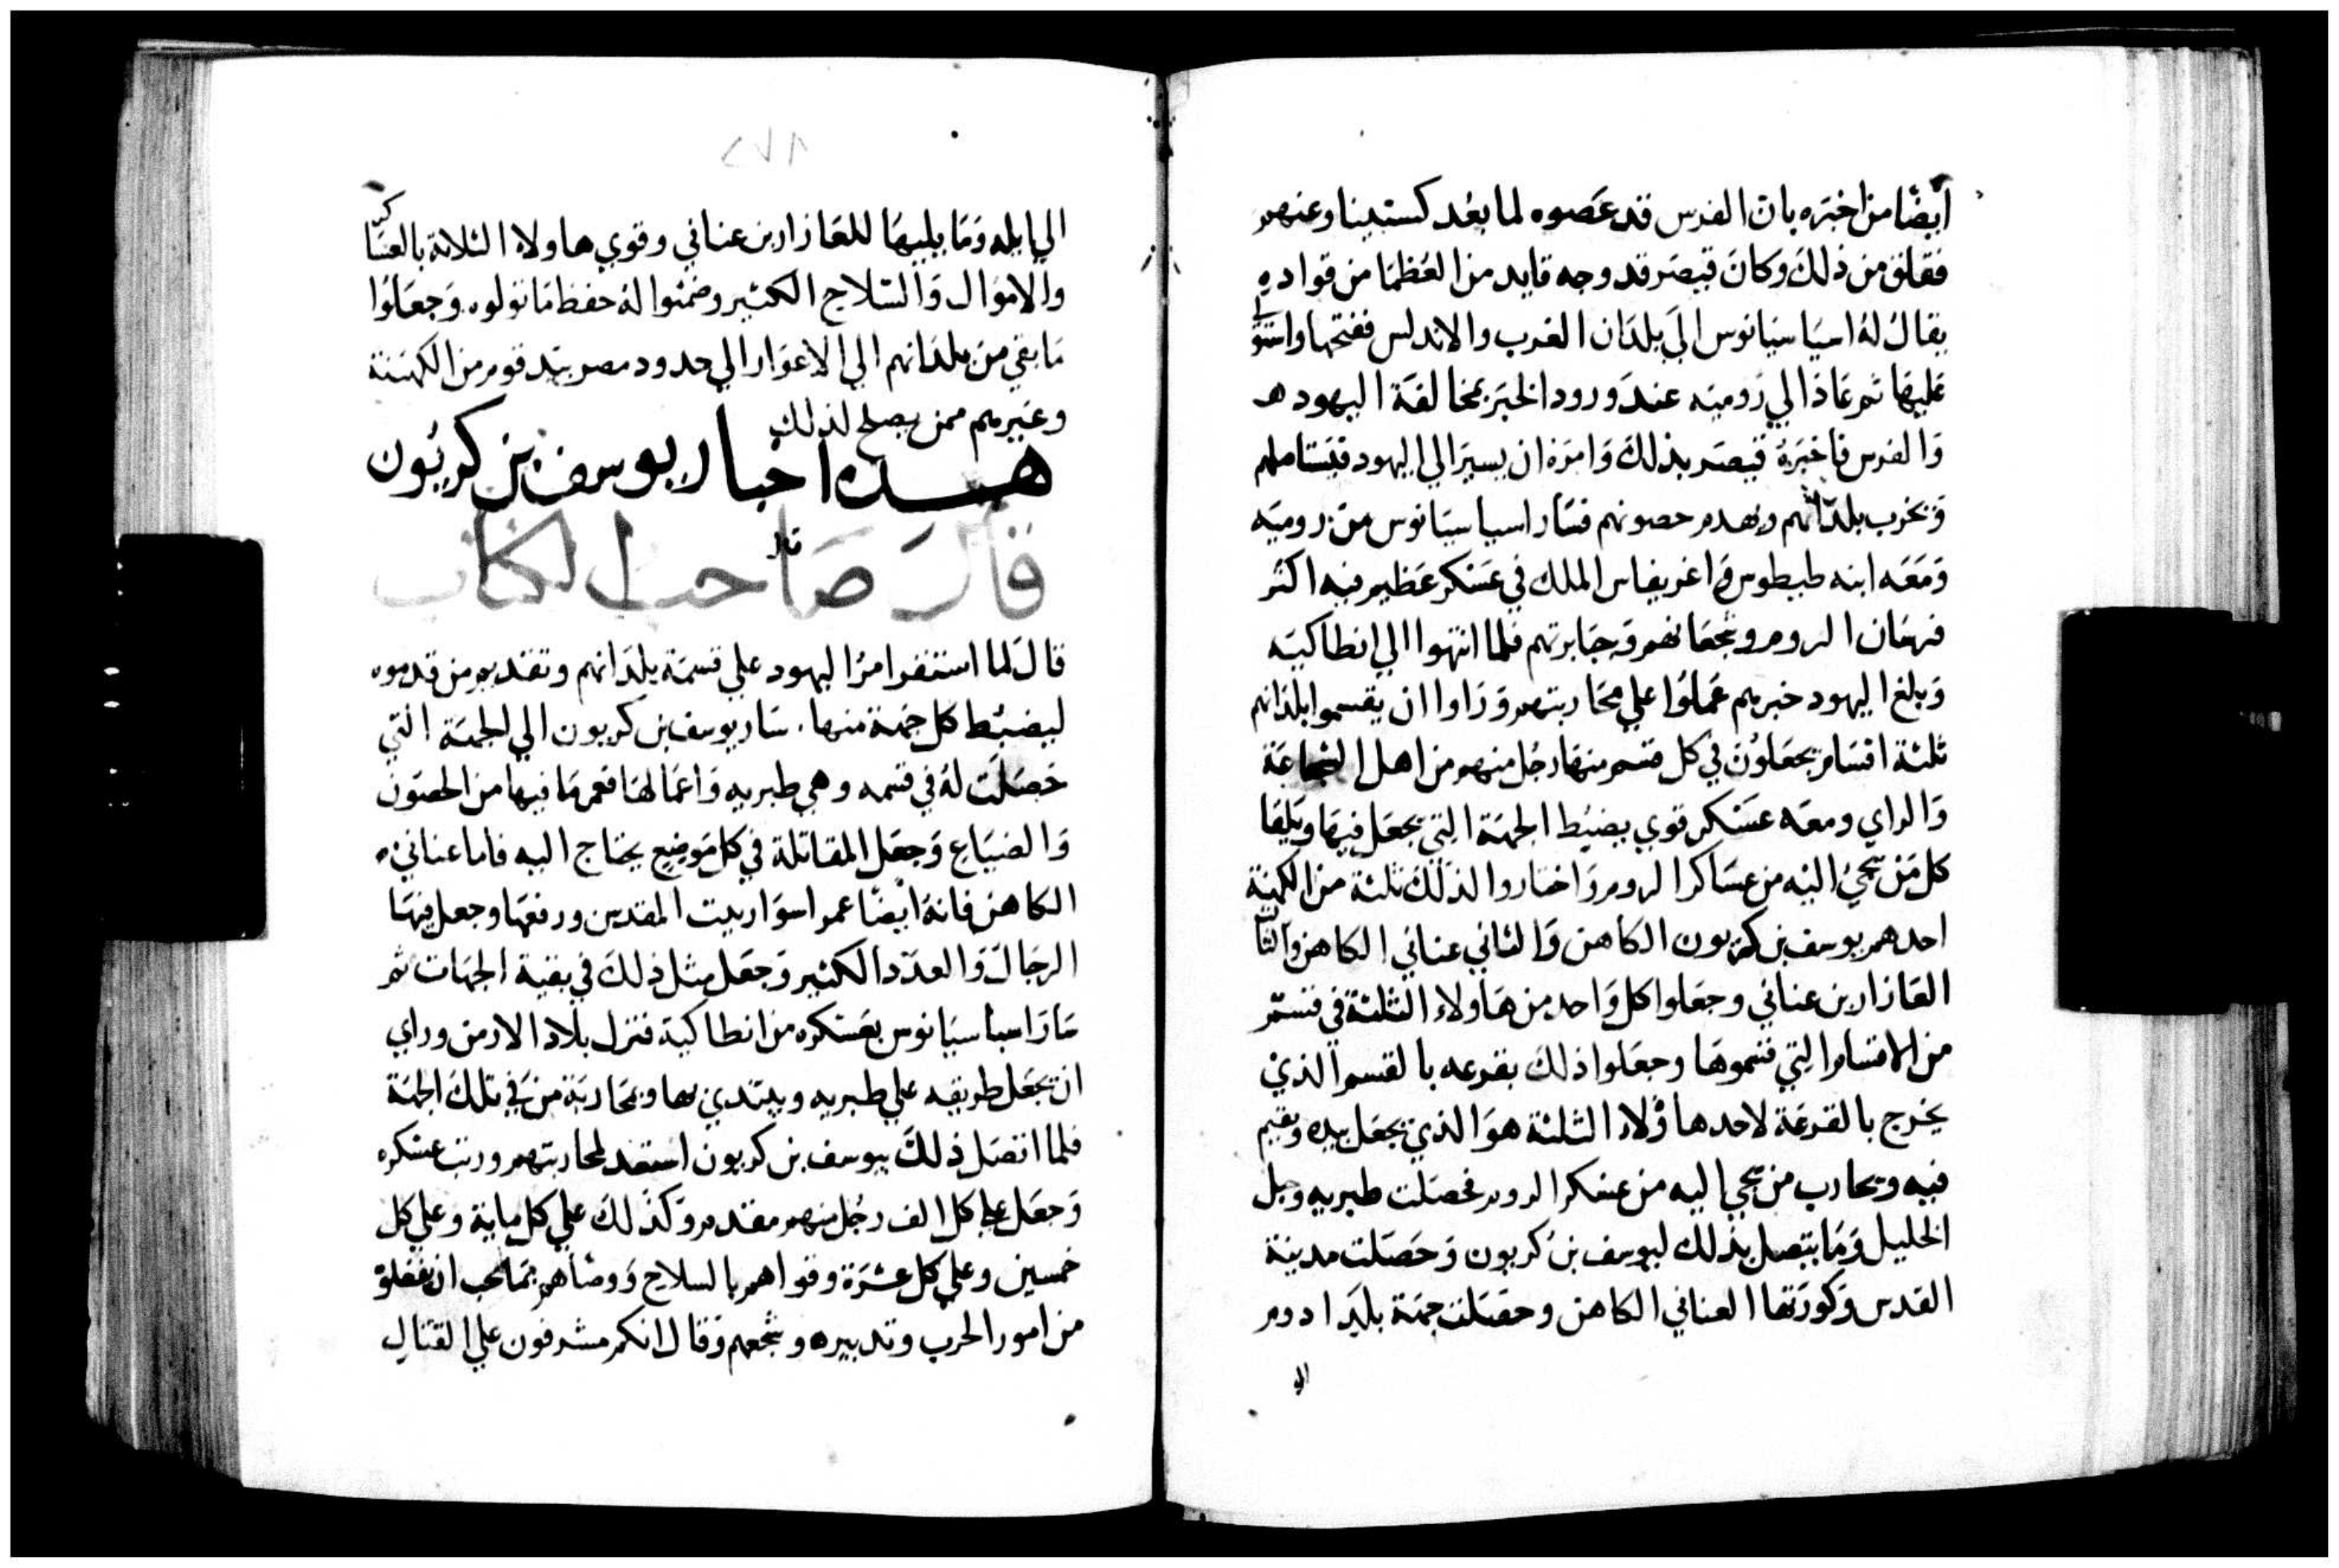 أيضًا من اخبره بان الفرس قد عصوه لما بعد كستينا وعنهم
فقلق من ذلك وكان قيصر قد وجه قايد من العظما من قواده
يقال له اسياسيانوس الي بلدان الغرب والاندلس ففتحها واستولي
عليها ثم عاد الي رومية عند ورود الخبر بمخالفة اليهود
والفرس فاخبره قيصر بذلك وامره ان يسير الي اليهود فيستاصلهم
ويخرب بلدانهم ويهدم حصونهم فسار اسياسيانوس من رومية
ومعه ابنه طيطوس واغريفاس الملك في عسكر عظيم فيه اكثر
فرسان الروم وشجعانهم وجبابرتهم فلما انتهوا الي انطاكيه
وبلغ اليهود خبرهم عملوا علي محاربتهم وراوا ان يقسموا بلدانهم
ثلثة اقسام يجعلون في كل قسم منها رجل منهم من اهل الشجاعة
والراي ومعه عسكر قوي يضبط الجهة التي يجعل فيها ويلقا
كل من يجي اليه من عساكر الروم واختاروا لذلك ثلثة من الكهنة
احدهم يوسف بن كريون الكاهن والثاني عناني الكاهن والثالث
العازار بن عناني وجعلوا كل واحد من هاولاء الثلثة في قسم
من الاقسام التي قسموها وجعلوا ذلك بقرعه بالقسم الذي
يخرج بالقرعة لاحد هاؤلاء الثلثة هو الذي يجعل بيده ويقيم
فيه ويحارب من يجي اليه من عسكر الروم فحصلت طبريه وجبل
الخليل وما يتصل بذلك ليوسف بن كريون وحصلت مدينة
القدس وكورتها العناني الكاهن وحصلت جهة بليد ادوم
الي
٢٧٨
الي ايله وما يليها للعازار بن عناني وقوي هاولاء الثلاثة بالعساكر
والاموال والسلاح الكثير وضمنوا له حفظ ما تولوه وجعلوا
ما بقي من بلدانهم الي الاغوار الي حدود مصر بيد قوم من الكهنة
وغيرهم ممن يصلح لذلك
هذه اخبار يوسف بن كريون
قال صاحب الكتاب
قال لما استقر امر اليهود علي قسمة بلدانهم وتقديم من قدموه
ليضبط كل جهة منها سار يوسف بن كريون الي الجهة التي
حصلت له في قسمه وهي طبريه واعمالها فعمر ما فيها من الحصون
والضياع وجعل المقاتلة في كل موضع يحتاج اليه فاما عناني
الكاهن فانه ايضًا عمر اسوار بيت المقدس ورفعها وجعل فيها
الرجال والعدد الكثير وجعل مثل ذلك في بقية الجهات ثم
سار اسباسيانوس بعسكره من انطاكية فنزل بلاد الارمن وراي
ان يجعل طريقه علي طبريه ويبتدي بها ويحاربة من في تلك الجهة
فلما اتصل ذلك بيوسف بن كريون استعد لمحاربتهم ورتب عسكره
وجعل علي كل الف رجل منهم مقدم وكذلك علي كل ماية وعلي كل
خمسين وعلي كل عشرة وقواهم بالسلاح ووصاهم بما يجب ان
من امور الحرب وتدبيره وشجعهم وقال انكم مشرفون علي القتال